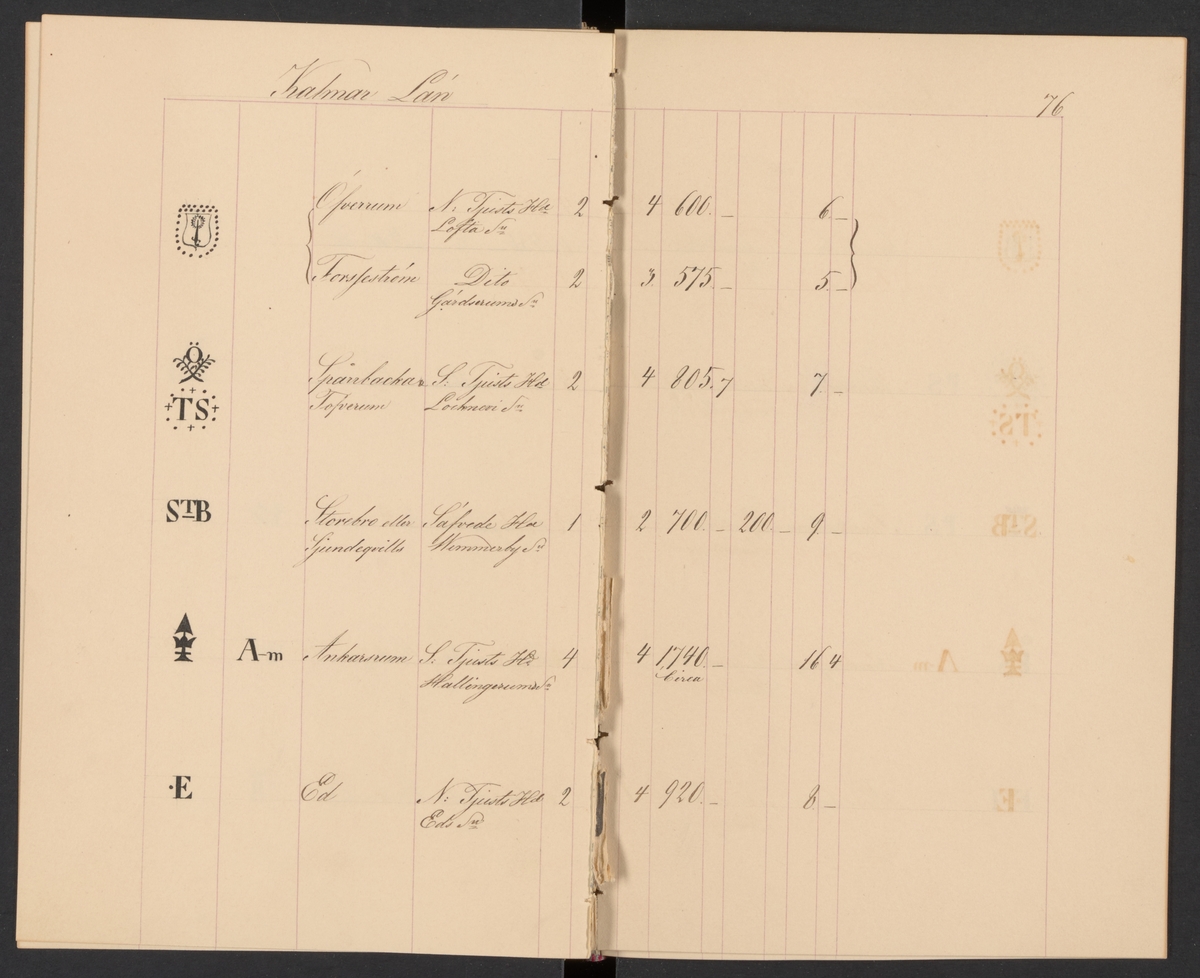 Kalmar Län
76.
Öfverum N: Tjusts Hd 2 4 600. – 6. –
Lofta Sn
Forssström Dito 2 3. 575. – 5. –
Gärdserums Sn
Ö
Spånbacka S. Tjusts Hd 2 4 805. 7 7. –
TS Locknevi Sn
STB Storebro eller Säfvede Hd 1 2 700. – 200. – 9. –
Wimmerby Sn
A-m Ankarsrum S. Tjusts Hd 4 4 1,740. – 16 4
Circa
Hallingerums Sn
·E Ed N: Tjusts Hd 2 4 920. – 8. –
Eds Sn